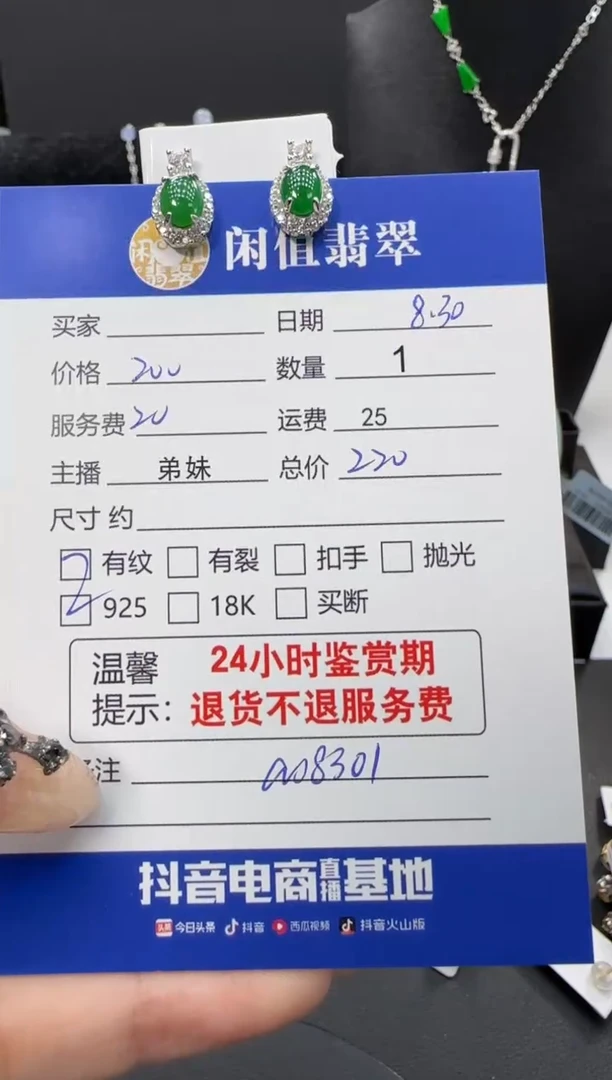 闲值翡翠
闲值翡翠
买家 日期 8.30
价格 200 数量 1
服务费 20 运费 25
主播 弟妹 总价 220
尺寸 约
有纹 有裂 扣手 抛光
925 18K 买断
温馨 24小时鉴赏期
提示：退货不退服务费
注 a08301
抖音电商直播基地
头条 今日头条 抖音 西瓜视频 抖音火山版